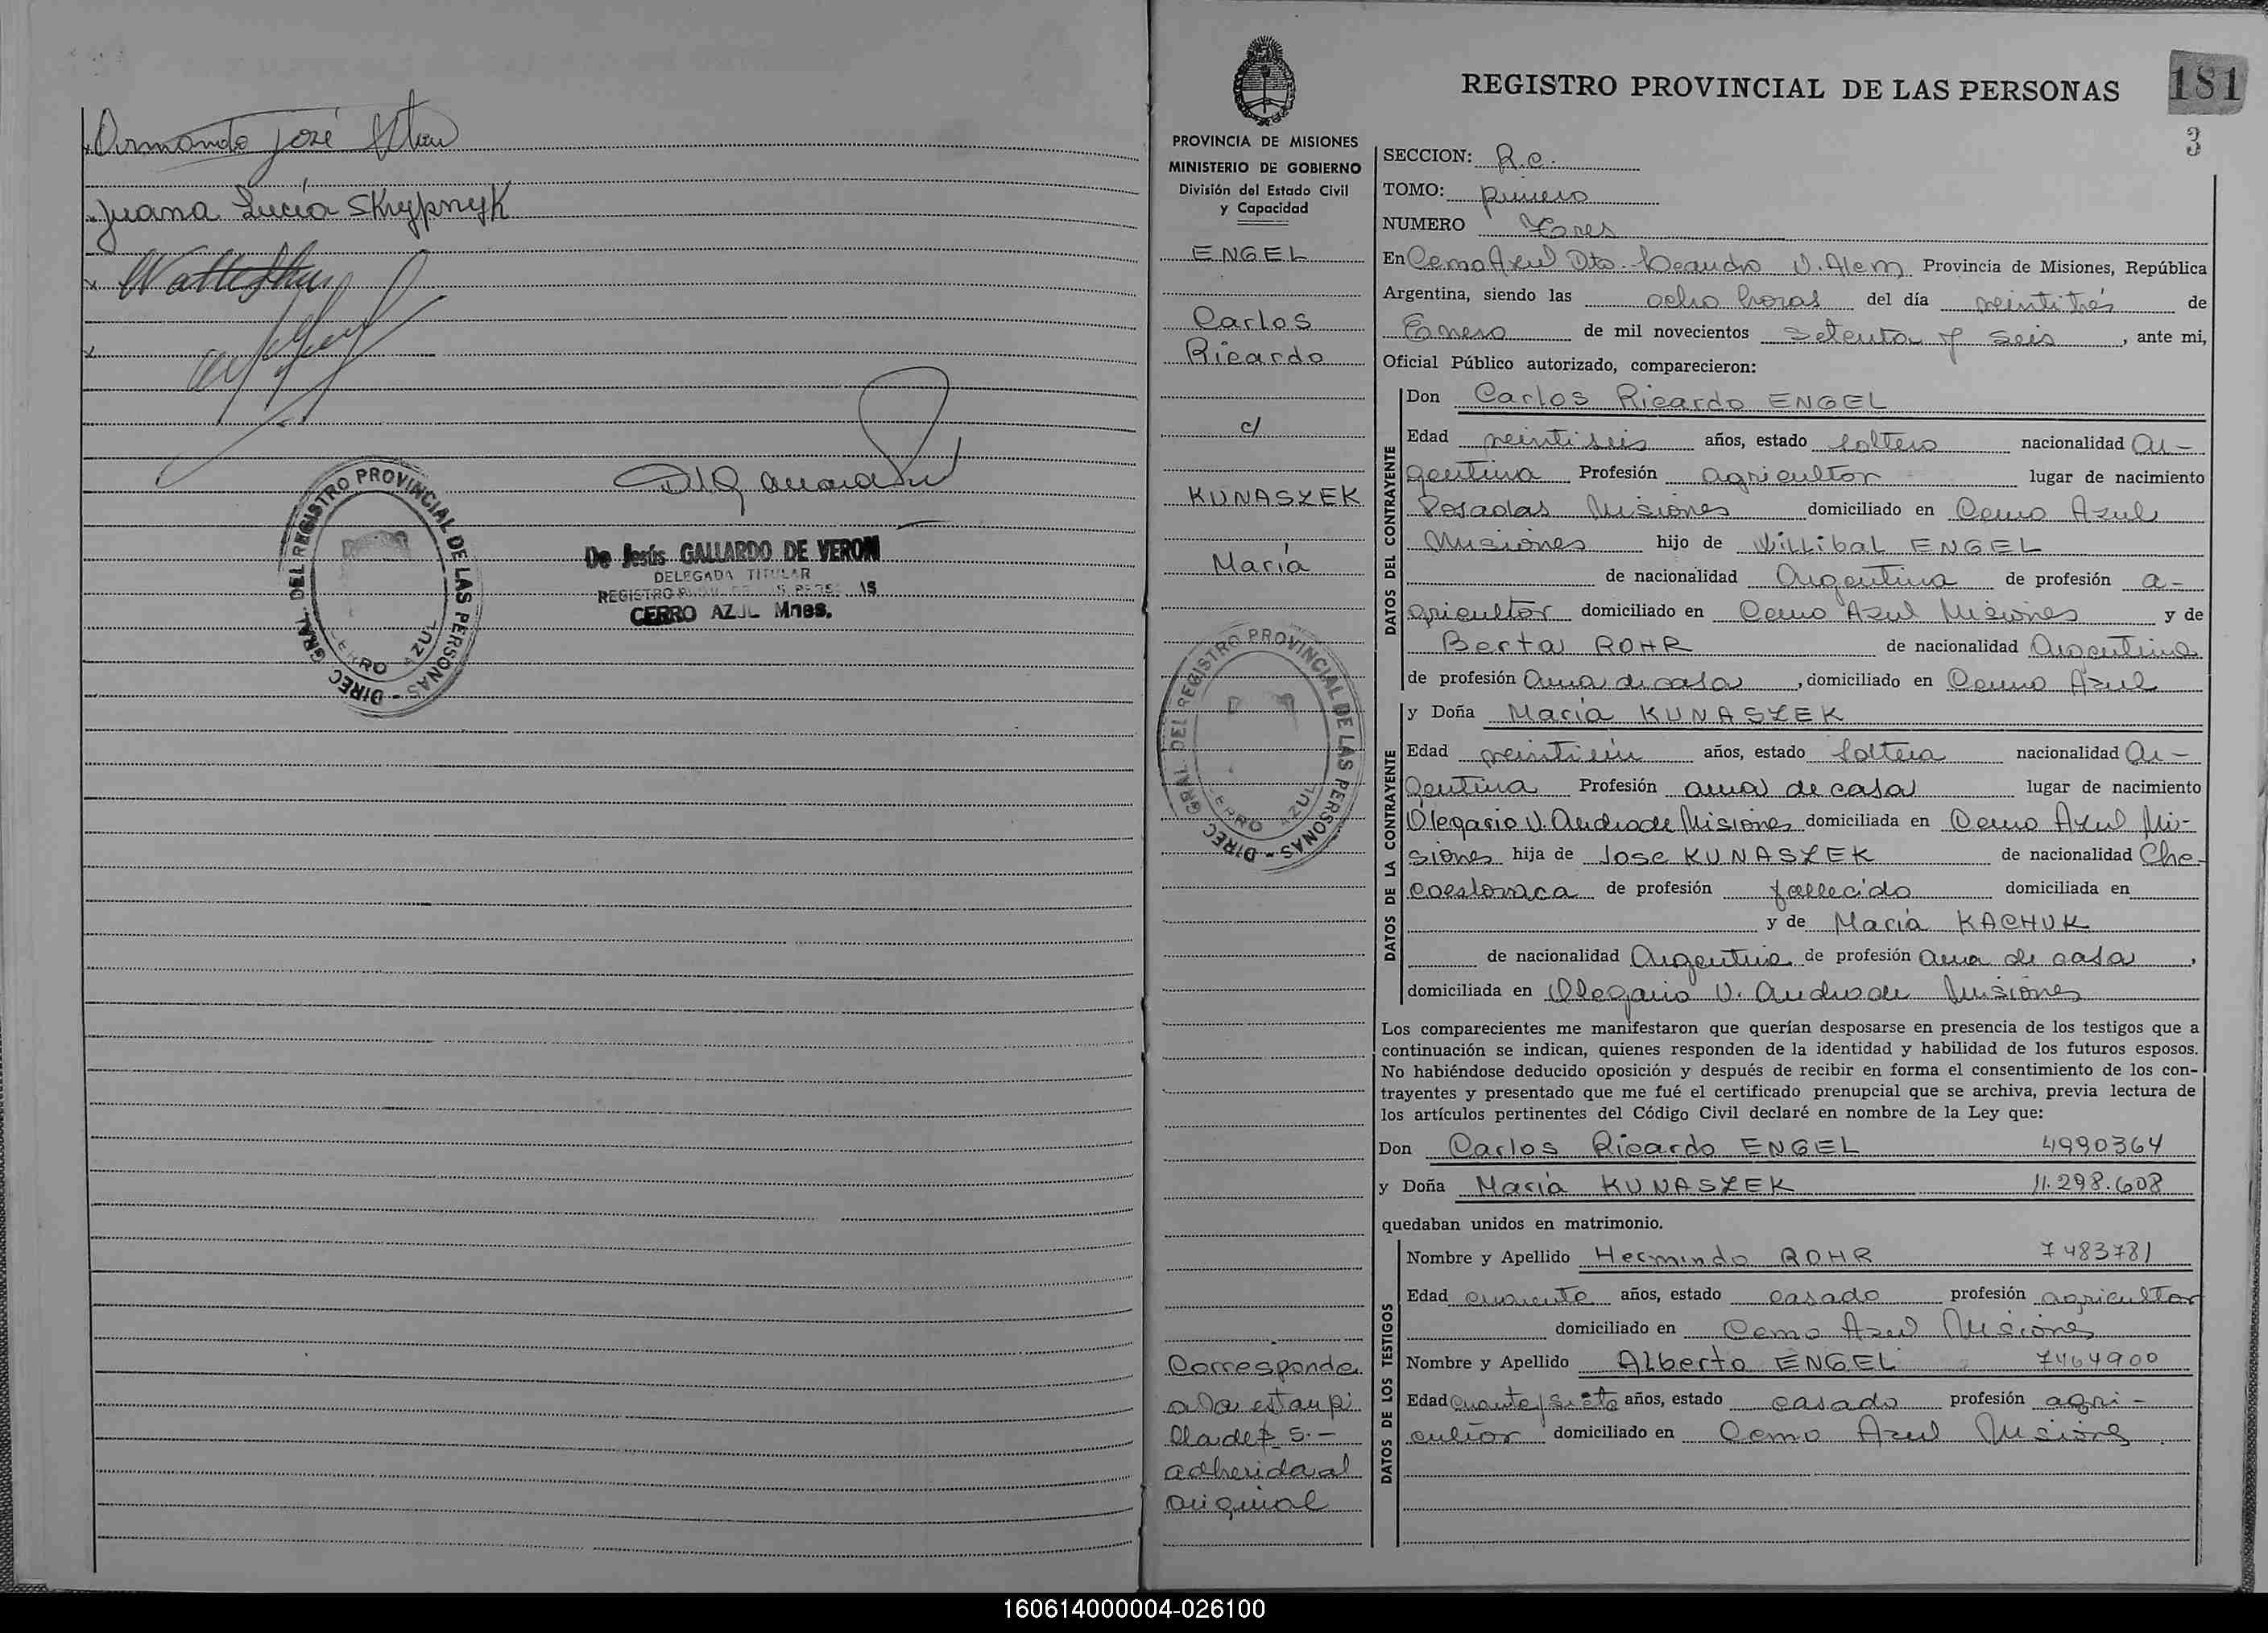 Armando José
Juana Lucía Skrypnyk
DIREC. GRAL. DEL REGISTRO PROVINCIAL DE LAS PERSONAS
CERRO AZUL
De Jesús GALLARDO DE VERON
DELEGADA TITULAR
REGISTRO
CERRO AZUL Mnes.
181
3
REGISTRO PROVINCIAL DE LAS PERSONAS
PROVINCIA DE MISIONES
MINISTERIO DE GOBIERNO
División del Estado Civil
y Capacidad
ENGEL
Carlos
Ricardo
c/
KUNASZEK
María
DIREC. GRAL. DEL REGISTRO PROVINCIAL DE LAS PERSONAS
CERRO AZUL
Corresponde
a la estampi
lla de $ 5.-
adherida al
original
SECCION: R.C.
TOMO: primero
NUMERO Tres
En Cerro Azul Dto. Leandro N. Alem Provincia de Misiones, República
Argentina, siendo las ocho horas del día veintitrés de
Enero de mil novecientos setenta y seis, ante mi,
Oficial Público autorizado, comparecieron:
DATOS DEL CONTRAYENTE
Don Carlos Ricardo ENGEL
Edad veintiseis años, estado soltero nacionalidad Ar-
gentina Profesión agricultor lugar de nacimiento
Posadas Misiones domiciliado en Cerro Azul
Misiones hijo de Willibal ENGEL
de nacionalidad Argentina de profesión a-
gricultor domiciliado en Cerro Azul Misiones y de
Berta ROHR de nacionalidad Argentina
de profesión Ama de casa, domiciliado en Cerro Azul
DATOS DE LA CONTRAYENTE
y Doña María KUNASZEK
Edad veintiún años, estado soltera nacionalidad Ar-
gentina Profesión ama de casa lugar de nacimiento
Olegario V. Andrade Misiones domiciliada en Cerro Azul Mi-
siones hija de Jose KUNASZEK de nacionalidad Che-
coeslovaca de profesión fallecido domiciliada en
y de María KACHUK
de nacionalidad Argentina de profesión ama de casa,
domiciliada en Olegario V. Andrade Misiones
Los comparecientes me manifestaron que querían desposarse en presencia de los testigos que a
continuación se indican, quienes responden de la identidad y habilidad de los futuros esposos.
No habiéndose deducido oposición y después de recibir en forma el consentimiento de los con-
trayentes y presentado que me fué el certificado prenupcial que se archiva, previa lectura de
los artículos pertinentes del Código Civil declaré en nombre de la Ley que:
Don Carlos Ricardo ENGEL 4990364
y Doña María KUNASZEK 11.298.608
quedaban unidos en matrimonio.
DATOS DE LOS TESTIGOS
Nombre y Apellido Hermindo ROHR 7483781
Edad cuarenta años, estado casado profesión agricultor
domiciliado en Cerro Azul Misiones
Nombre y Apellido Alberto ENGEL 7464900
Edad cuarenta y siete años, estado casado profesión agri-
cultor domiciliado en Cerro Azul Misiones
160614000004-026100